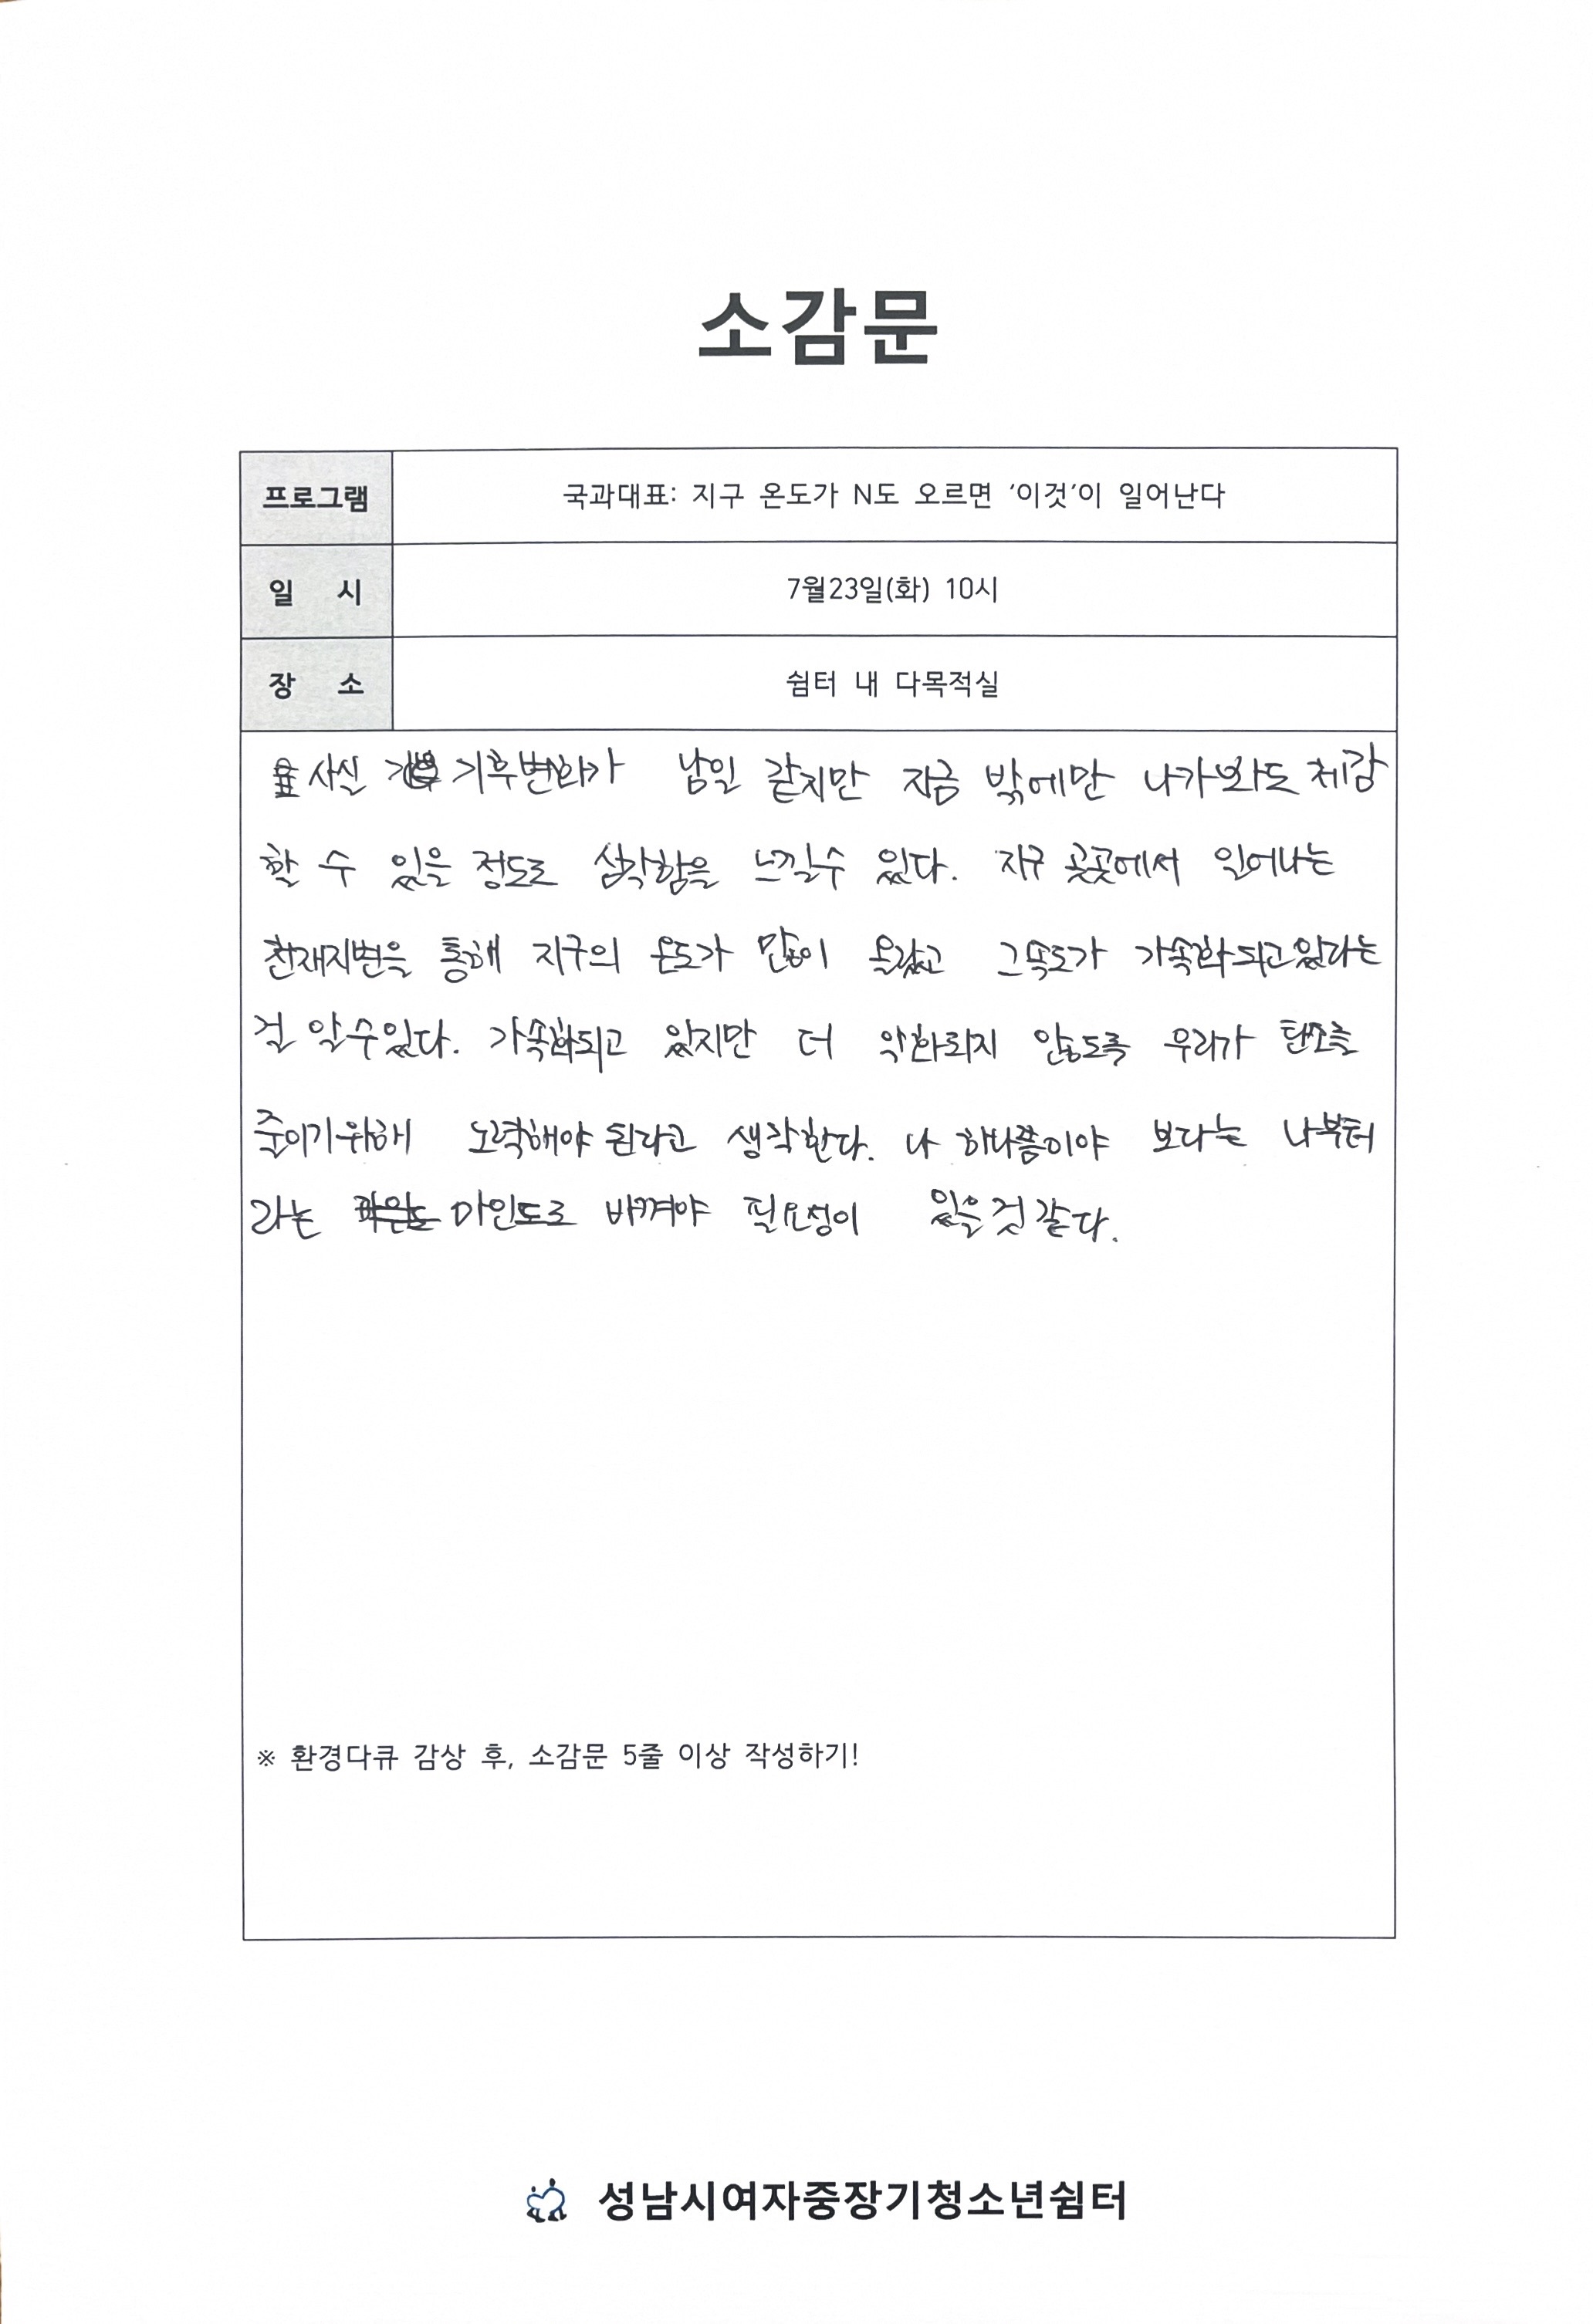 소감문
프로그램 국과대표: 지구 온도가 N도 오르면 '이것'이 일어난다
일 시 7월23일(화) 10시
장 소 쉼터 내 다목적실
사실 기후변화가 남일 같지만 지금 밖에만 나가봐도 체감
할 수 있을 정도로 심각함을 느낄수 있다. 지구 곳곳에서 일어나는
천재지변을 통해 지구의 온도가 많이 올랐고 그 속도가 가속화되고 있다는
걸 알 수 있다. 가속화되고 있지만 더 악화되지 않도록 우리가 탄소를
줄이기위해 노력해야 된다고 생각한다. 나 하나쯤이야 보다는 나부터
라는 마인드로 바껴야 필요성이 있을 것 같다.
※ 환경다큐 감상 후, 소감문 5줄 이상 작성하기!
성남시여자중장기청소년쉼터